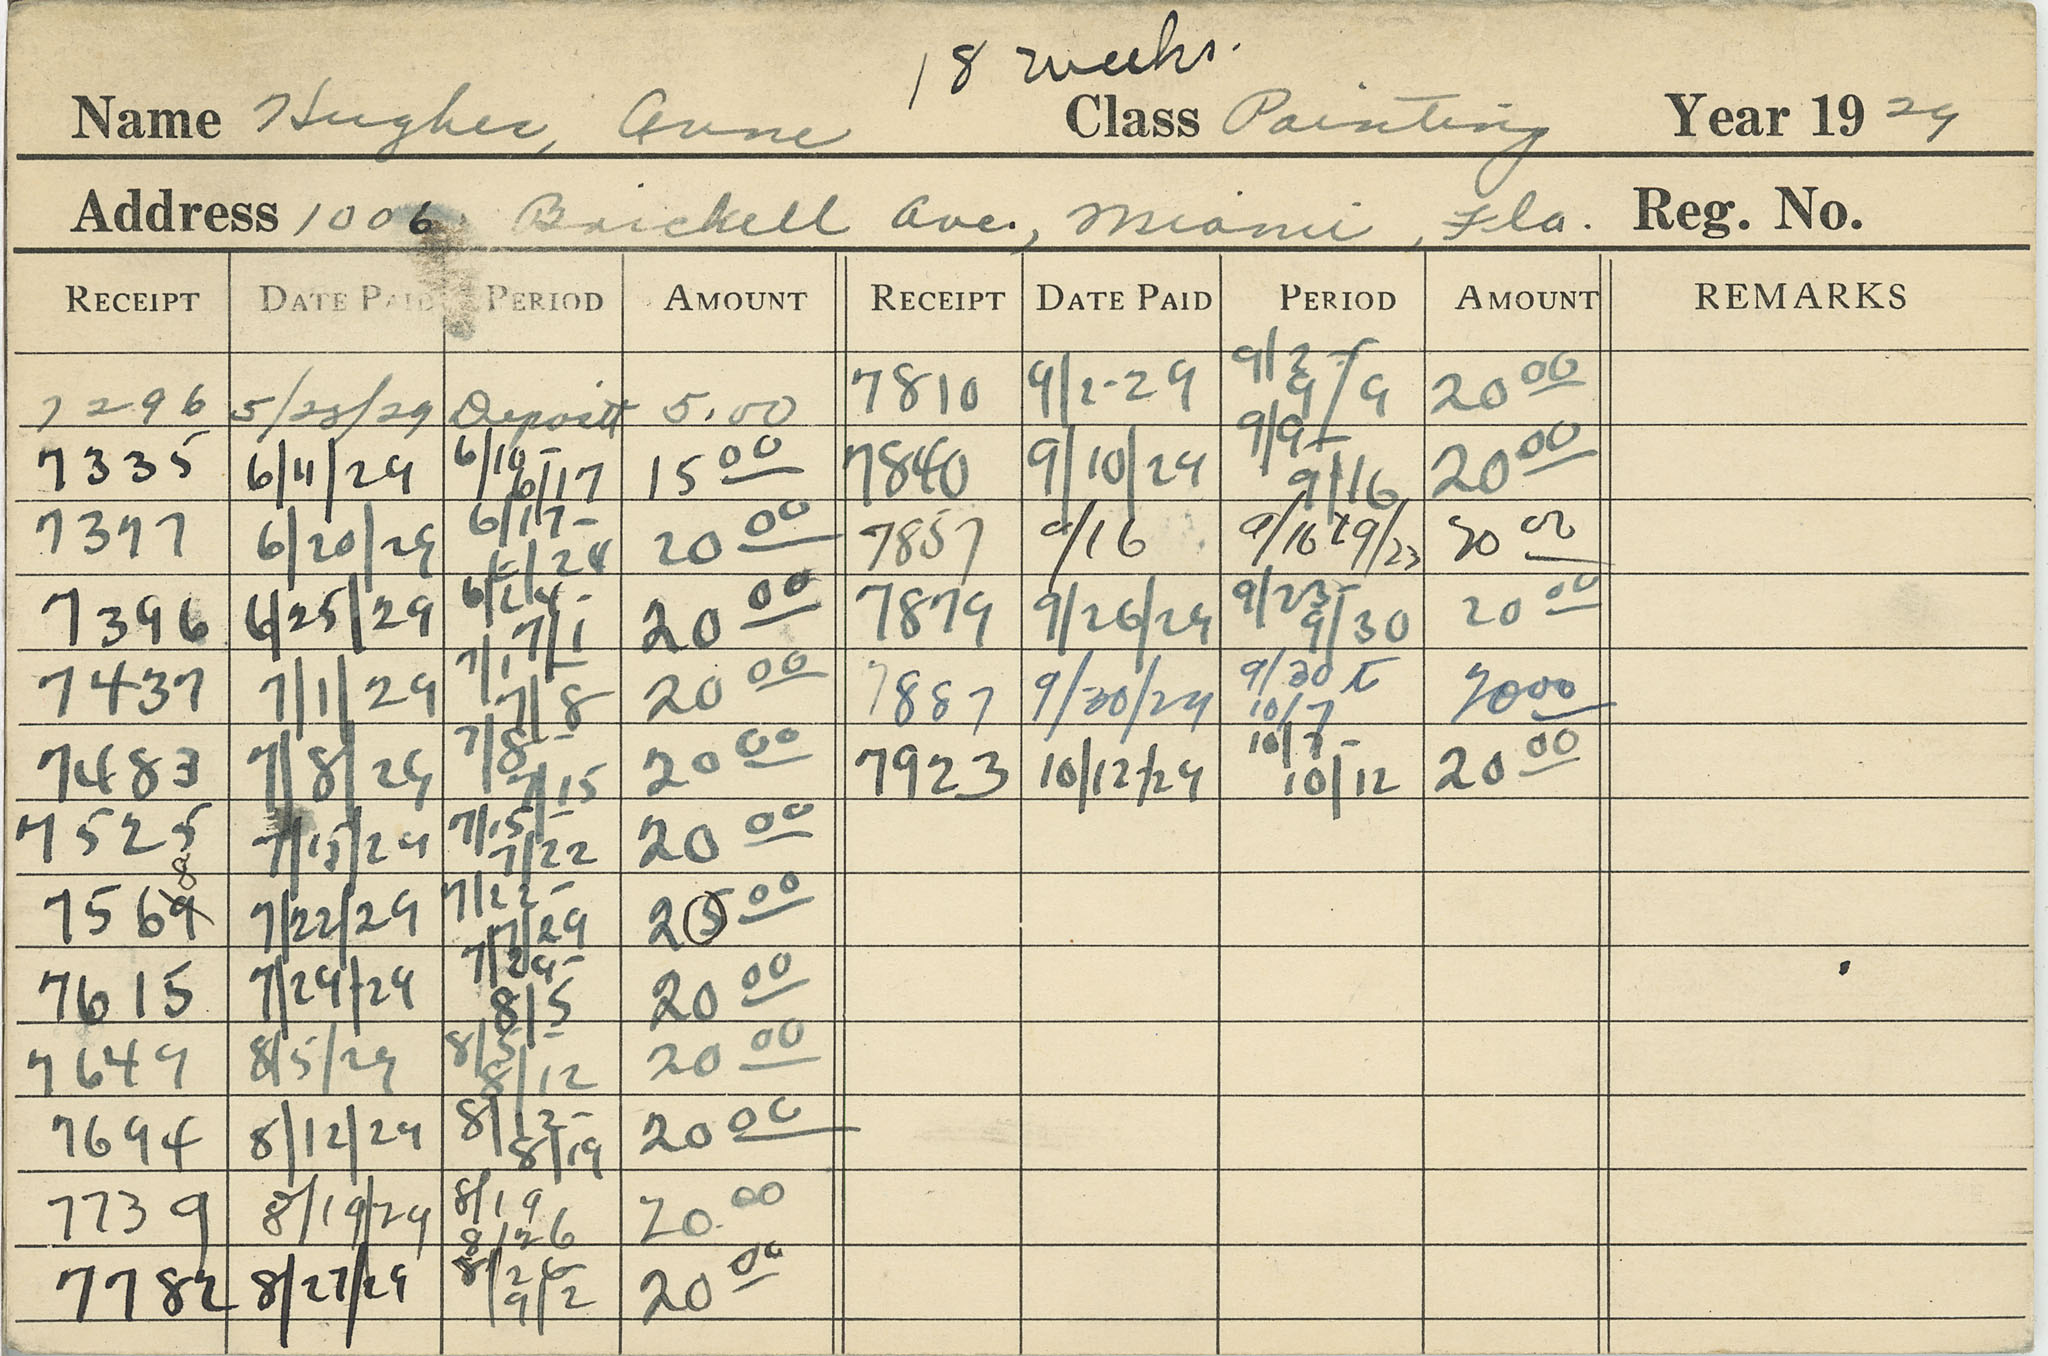 18 weeks.
Name Hughes, Anne Class Painting Year 19 29
Address 1006 Brickell Ave., Miami, Fla. Reg. No.
RECEIPT DATE PAID PERIOD AMOUNT RECEIPT DATE PAID PERIOD AMOUNT REMARKS
7296 5/28/29 Deposit 5.00 7810 9/2-29 9/2- 9/9 20 00
7335 6/11/29 6/10- 6/17 15 00 7840 9/10/29 9/9- 9/16 20 00
7377 6/20/29 6/17- 6/24 20 00 7857 9/16 9/16 to 9/23 20 00
7396 6/25/29 6/24- 7/1 20 00 7879 9/26/29 9/23- 9/30 20 00
7437 7/1/29 7/1- 7/8 20 00 7887 9/30/29 9/30 to 10/7 20 00
7483 7/8/29 7/8- 7/15 20 00 7923 10/12/29 10/7- 10/12 20 00
7525 7/15/29 7/15- 7/22 20 00
7569 8 7/22/29 7/22- 7/29 25 00
7615 7/29-29 7/29- 8/5 20 00
7649 8/5/29 8/5- 8/12 20 00
7694 8/12/29 8/12- 8/19 20 00
7739 8/19/29 8/19 8/26 20.00
7782 8/27/29 8/26 9/2 20 00